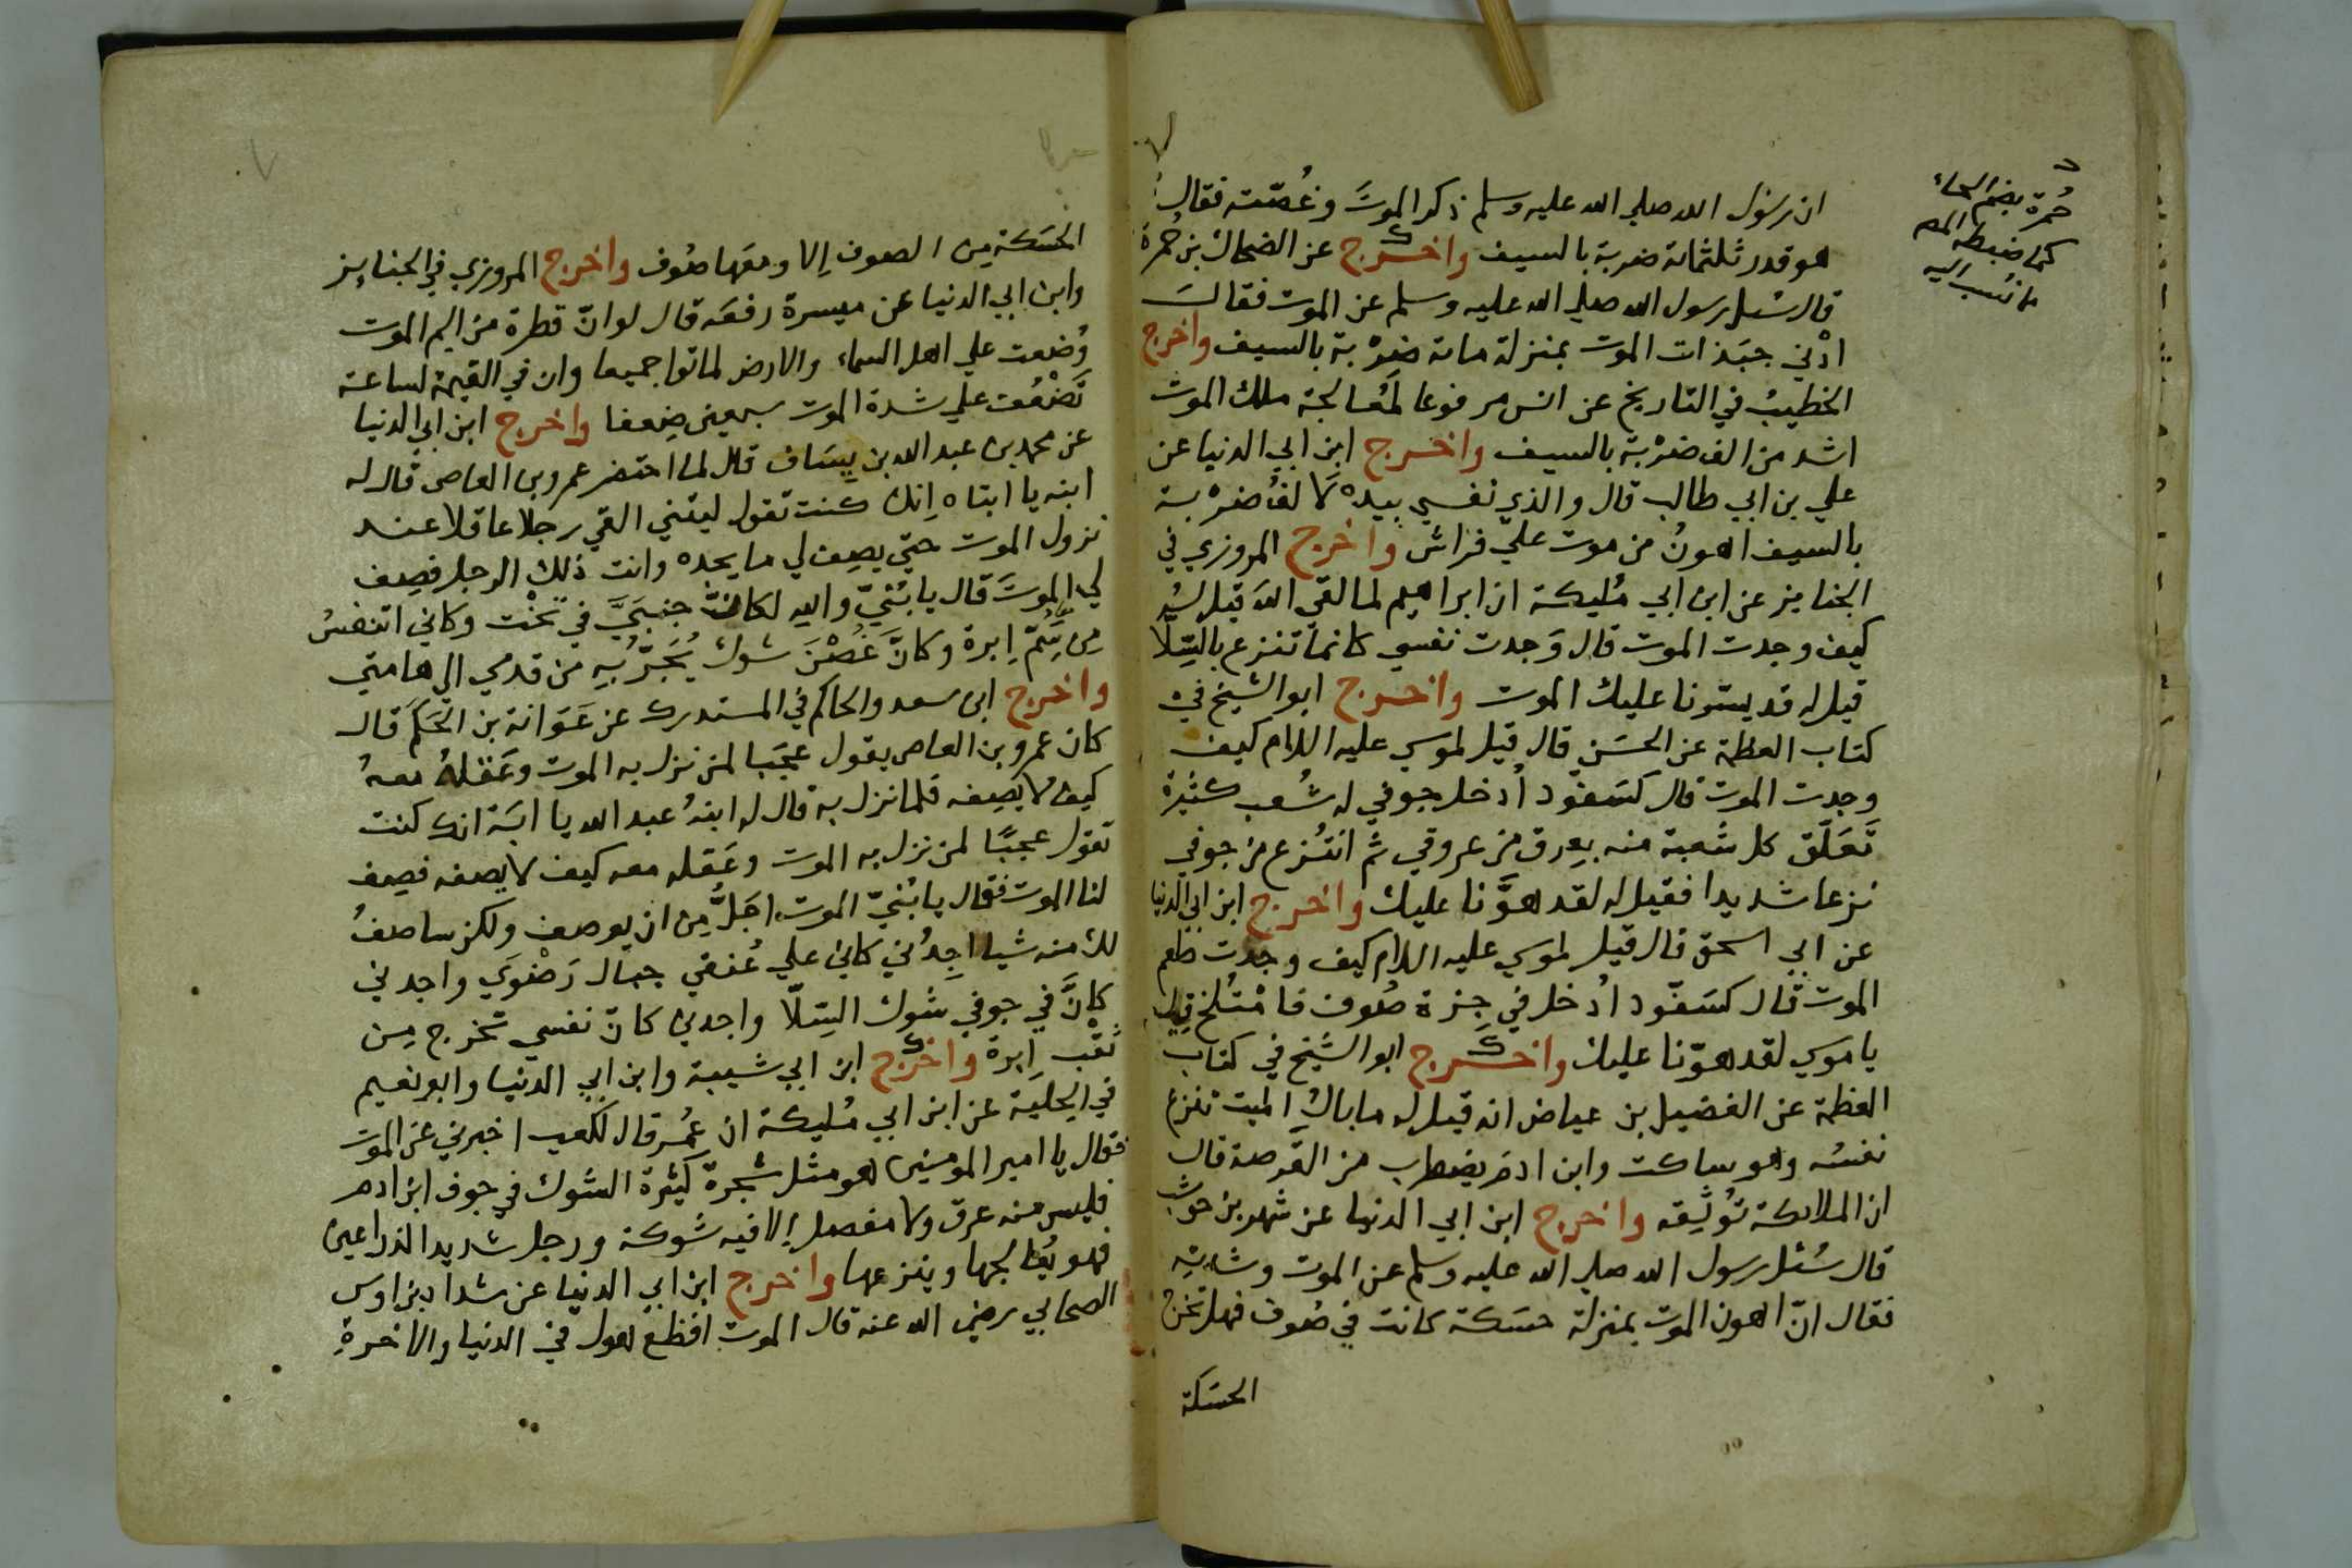 ان رسول الله صلي الله عليه وسلم ذكر الموتَ وغُصّته فقال
هو قدر ثلثمائة ضربة بالسيف واخرج عن الضحاك بن حُمرة
قال سُئل رسول الله صلي الله عليه وسلم عن الموت فقالَ
ادْني جبَذات الموت بمنزلة مائة ضرْبة بالسيف واخرج
الخطيبُ في التاريخ عن انس مرفوعا لمُعالجة ملك الموت
اشد من الف ضرْبة بالسيف واخرج ابن ابي الدنيا عن
علي بن ابي طالب قال والذي نفسي بيده لَالفُ ضرْبة
بالسيف اهونُ من موت علي فراش واخرج المروزي في
الجنايز عن ابن ابي مُليكة ان ابراهيم لما لقي اللهَ قيل له
كيف وجدت الموت قال وَجدت نفسي كانما تنزع بالسِّلّا
قيل له قد يسّرنا عليك الموت واخرج ابو الشيخ في
كتاب العظمة عن الحسَن قال قيل لموسي عليه السلام كيف
وجدت الموت قال كسَفّود اُدخل جوفي له شُعب كثيرة
تَعَلَّق كل شُعبة منه بعِرق من عروقي ثم انتُزع من جوفي
نزعا شديدا فقيل له لقد هوَّنا عليك واخرج ابن ابي الدنيا
عن ابي اسحق قال قيل لموسي عليه السلام كيف وجدت طعم
الموت قال كسَفّود اُدخل في جِزة صُوف فامْتُلخ قيل
يا موسي لقد هوّنا عليك واخرج ابو الشيخ في كتاب
العظمة عن الفضيل بن عياض انه قيل له ما بالُ الميت تنزع
نفسُه وهو ساكت وابن ادم يضطرب من القَرصة قال
ان الملائكة تُوثِقه واخرج ابن ابي الدنيا عن شهر بن حوشب
قال سُئل رسول الله صلي الله عليه وسلم عن الموت وشدته
فقال انّ اهون الموت بمنزلة حسَكة كانت في صُوف فهل تخرج
الحسَكة
حُمرة بضم الحاء
كما ضبطه المص
ما نُسب اليه
الحسَكة من الصوف اِلا ومعَها صُوف واخرج المروزي في الجنايز
وابن ابي الدنيا عن ميسرة رفعَه قال لو انّ قطرة من اَلم الموت
وُضعت علي اهل السماء والارض لماتوا جميعا وان في القيمة لساعة
تَضْعُف علي شدة الموت سبعين ضِعفا واخرج ابن ابي الدنيا
عن محمد بن عبد الله بن يِسَاف قال لما احتضر عمرو بن العاص قال له
ابنه يا ابتاه اِنك كنت تقول ليتني القي رجلا عاقلا عند
نزول الموت حتي يصِف لي ما يجده وانت ذلك الرجل فصِف
لي الموتَ قال يا بُنيّ والله لكانَّ جنبَيَّ في تخْت وكاني اتنفسُ
من سَُمّ اِبرة وكانَّ غُصْنَ شوك يُجَرّ بِه من قدمي الي هامتي
واخرج ابن سعد والحاكم في المستدرك عن عَوَانة بن الحَكَم قال
كان عمرو بن العاص يقول عجَبا لمن نزل به الموت وعَقلهُ معهُ
كيف لا يَصِفه فلما نزل به قال له ابنهُ عبد الله يا ابَة انك كنت
تقول عجبًا لمن نزل به الموت وعَقله معه كيف لا يصفه فصِف
لنا الموت فقال يا بُنيّ الموت اجَلُّ مِن ان يوصف ولكن ساصفُ
لك منه شيا اجِدُني كان علي عُنقي جبال رَضْوَي واجدني
كانَّ في جوفي شَوك السِّلّا واجدني كانّ نفسي تخرج مِن
ثقْب اِبرة واخرج ابن ابي شيبة وابن ابي الدنيا وابو نعيم
في الحلية عن ابن ابي مُليكة ان عُمر قال لكعب اخبرني عن الموت
فقال يا امير المومنين هو مثل شجرة كثيرة الشوك في جوف ابن ادم
فليس منه عرق ولا مفصل اِلا فيه شوكة ورجل شديد الذراعين
فهو يُعالجها وينزعها واخرج ابن ابي الدنيا عن شداد بن اوس
الصحابي رضي الله عنه قال الموت افظع هول في الدنيا والاخرة